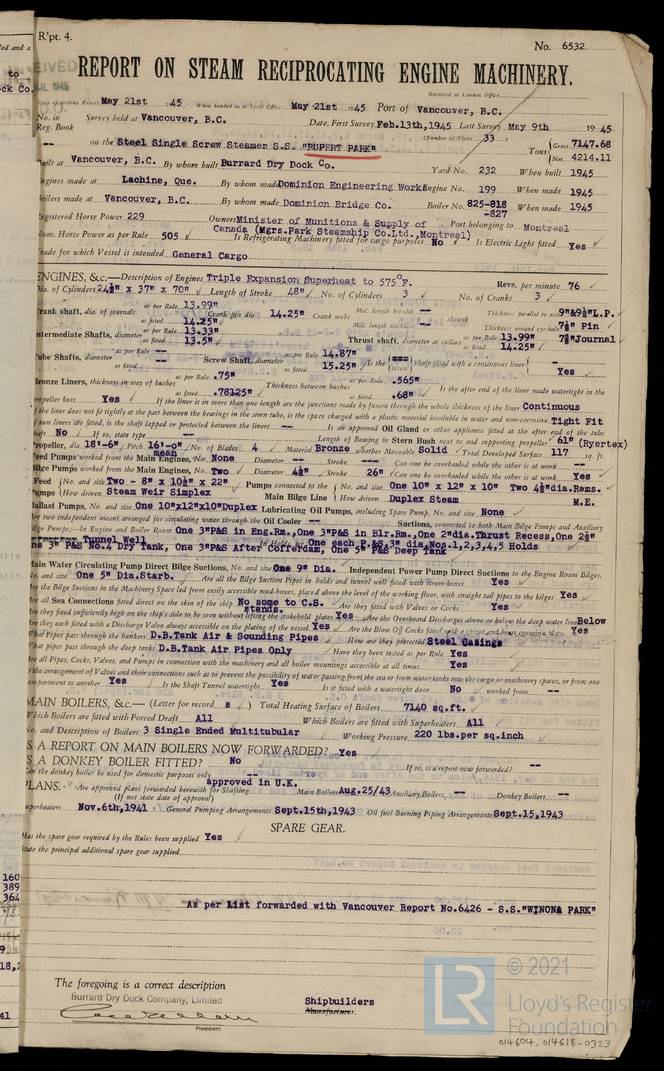 R'pt. 4.
No. 6532
REPORT ON STEAM RECIPROCATING ENGINE MACHINERY.
Received at London Office
Date of writing Report May 21st 1945 When handed in at Local Office May 21st 1945 Port of Vancouver, B.C.
No. in Reg. Book Survey held at Vancouver, B.C. Date, First Survey Feb.13th,1945 Last Survey May 9th 1945
(Number of Visits 33)
-- on the Steel Single Screw Steamer S.S. "RUPERT PARK" Tons Gross 7147.68
Net 4214.11
Built at Vancouver, B.C. By whom built Burrard Dry Dock Co. Yard No. 232 When built 1945
Engines made at Lachine, Que. By whom made Dominion Engineering Works Engine No. 199 When made 1945
Boilers made at Vancouver, B.C. By whom made Dominion Bridge Co. Boiler No. 825-818 -827 When made 1945
Registered Horse Power 229 Owners Minister of Munitions & Supply of Canada (Mgrs.Park Steamship Co.Ltd.,Montreal) Port belonging to Montreal
Nom. Horse Power as per Rule 505 Is Refrigerating Machinery fitted for cargo purposes No Is Electric Light fitted Yes
Trade for which Vessel is intended General Cargo
ENGINES, &c.—Description of Engines Triple Expansion Superheat to 575°F. Revs. per minute 76
Dia. of Cylinders 24½" X 37" X 70" Length of Stroke 48" No. of Cylinders 3 No. of Cranks 3
Crank shaft, dia. of journals as per Rule 13.99" as fitted 14.25" Crank pin dia. 14.25" Crank webs Mid. length breadth -- Mid. length thickness -- shrunk Thickness parallel to axis 9"&9½"L.P. Thickness around eye-hole 7⅞" Pin 7⅞"Journal
Intermediate Shafts, diameter as per Rule 13.33" as fitted 13.5" Thrust shaft, diameter at collars as per Rule 13.99" as fitted 14.25"
Tube Shafts, diameter as per Rule -- as fitted -- Screw Shaft, diameter as per Rule 14.87" as fitted 15.25" Is the screw shaft fitted with a continuous liner -- Yes
Bronze Liners, thickness in way of bushes as per Rule .75" as fitted .78125" Thickness between bushes as per Rule .565" as fitted .68" Is the after end of the liner made watertight in the
propeller boss Yes If the liner is in more than one length are the junctions made by fusion through the whole thickness of the liner Continuous
If the liner does not fit tightly at the part between the bearings in the stern tube, is the space charged with a plastic material insoluble in water and non-corrosive Tight Fit
If two liners are fitted, is the shaft lapped or protected between the liners -- Is an approved Oil Gland or other appliance fitted at the after end of the tube
shaft No If so, state type -- Length of Bearing in Stern Bush next to and supporting propeller 61" (Ryertex)
Propeller, dia. 18'-6" Pitch 16'-0" mean No. of Blades 4 Material Bronze whether Moveable Solid Total Developed Surface 117 sq. ft.
Feed Pumps worked from the Main Engines, No. None Diameter -- Stroke -- Can one be overhauled while the other is at work --
Bilge Pumps worked from the Main Engines, No. Two Diameter 4½" Stroke 26" Can one be overhauled while the other is at work Yes
Feed Pumps No. and size Two - 8" x 10½" x 22" How driven Steam Weir Simplex Pumps connected to the Main Bilge Line No. and size One 10" x 12" x 10" Two 4½"dia.Rams. How driven Duplex Steam M.E.
Ballast Pumps, No. and size One 10"x12"x10"Duplex Lubricating Oil Pumps, including Spare Pump, No. and size None
Are two independent means arranged for circulating water through the Oil Cooler -- Suctions, connected to both Main Bilge Pumps and Auxiliary
Bilge Pumps:—In Engine and Boiler Room One 3"P&S in Eng.Rm.,One 3"P&S in Blr.Rm.,One 2"dia.Thrust Recess,One 2½"
Tunnel Well In Holds, &c. One each P.&S,3" dia,Nos.1,2,3,4,5 Holds
One 3" P&S No.4 Dry Tank, One 3"P&S After Cofferdam, One 5" P&S Deep Tank
Main Water Circulating Pump Direct Bilge Suctions, No. and size One 9" Dia. Independent Power Pump Direct Suctions to the Engine Room Bilges,
No. and size One 5" Dia.Starb. Are all the Bilge Suction Pipes in holds and tunnel well fitted with strum-boxes Yes
Are the Bilge Suctions in the Machinery Space led from easily accessible mud-boxes, placed above the level of the working floor, with straight tail pipes to the bilges Yes
Are all Sea Connections fitted direct on the skin of the ship No some to C.S. stands. Are they fitted with Valves or Cocks Yes
Are they fixed sufficiently high on the ship's side to be seen without lifting the stokehold plates Yes Are the Overboard Discharges above or below the deep water line Below
Are they each fitted with a Discharge Valve always accessible on the plating of the vessel Yes Are the Blow Off Cocks fitted with a spigot and brass covering plate Yes
What Pipes pass through the bunkers D.B.Tank Air & Sounding Pipes How are they protected Steel Casings
What pipes pass through the deep tanks D.B.Tank Air Pipes Only Have they been tested as per Rule Yes
Are all Pipes, Cocks, Valves, and Pumps in connection with the machinery and all boiler mountings accessible at all times Yes
Is the arrangement of Valves and their connections such as to prevent the possibility of water passing from the sea or from water tanks into the cargo or machinery spaces, or from one
compartment to another Yes Is the Shaft Tunnel watertight Yes Is it fitted with a watertight door No worked from --
MAIN BOILERS, &c.— (Letter for record s) Total Heating Surface of Boilers 7140 sq.ft.
Which Boilers are fitted with Forced Draft All Which Boilers are fitted with Superheaters All
No. and Description of Boilers 3 Single Ended Multitubular Working Pressure 220 lbs.per sq.inch
IS A REPORT ON MAIN BOILERS NOW FORWARDED? Yes
IS A DONKEY BOILER FITTED? No If so, is a report now forwarded? --
Can the donkey boiler be used for domestic purposes only --
PLANS. Are approved plans forwarded herewith for Shafting approved in U.K. Main Boilers Aug.25/43 Auxiliary Boilers -- Donkey Boilers --
(If not state date of approval)
Superheaters Nov.6th,1941 General Pumping Arrangements Sept.15th,1943 Oil fuel Burning Piping Arrangements Sept.15,1943
SPARE GEAR.
Has the spare gear required by the Rules been supplied Yes
State the principal additional spare gear supplied
As per List forwarded with Vancouver Report No.6426 - S.S."WINONA PARK"
The foregoing is a correct description
Burrard Dry Dock Company, Limited Shipbuilders
Manufacturer.
President
© 2021
LR
Lloyd's Register
Foundation
014604-014618-0323